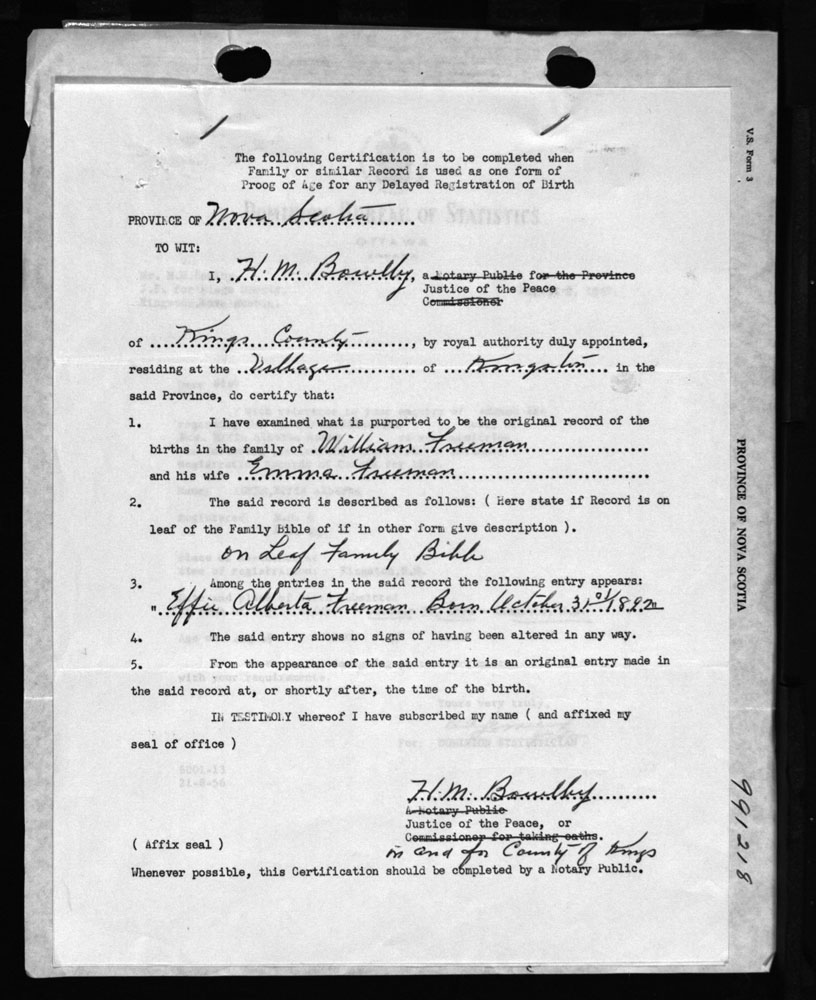 The following Certification is to be completed when
Family or similar Record is used as one form of
Proog of Age for any Delayed Registration of Birth
BUREAU OF STATISTICS
OTTAWA
PROVINCE OF Nova Scotia
TO WIT:
I, H. M. Bowlby, a Notary Public for the Province
Justice of the Peace
Commissioner
of Kings County, by royal authority duly appointed,
residing at the Village of Kingston in the
said Province, do certify that:
1. I have examined what is purported to be the original record of the
births in the family of William Freeman
and his wife Emma Freeman
2. The said record is described as follows: ( Here state if Record is on
leaf of the Family Bible of if in other form give description ).
on Leaf Family Bible
3. Among the entries in the said record the following entry appears:
" Effie Alberta Freeman Born October 31st 1892
4. The said entry shows no signs of having been altered in any way.
5. From the appearance of the said entry it is an original entry made in
the said record at, or shortly after, the time of the birth.
IN TESTIMONY whereof I have subscribed my name ( and affixed my
seal of office )
H. M. Bowlby
A Notary Public
Justice of the Peace, or
Commissioner for taking oaths.
( Affix seal )
in and for County of Kings
Whenever possible, this Certification should be completed by a Notary Public.
V.S. Form 3
PROVINCE OF NOVA SCOTIA
991218